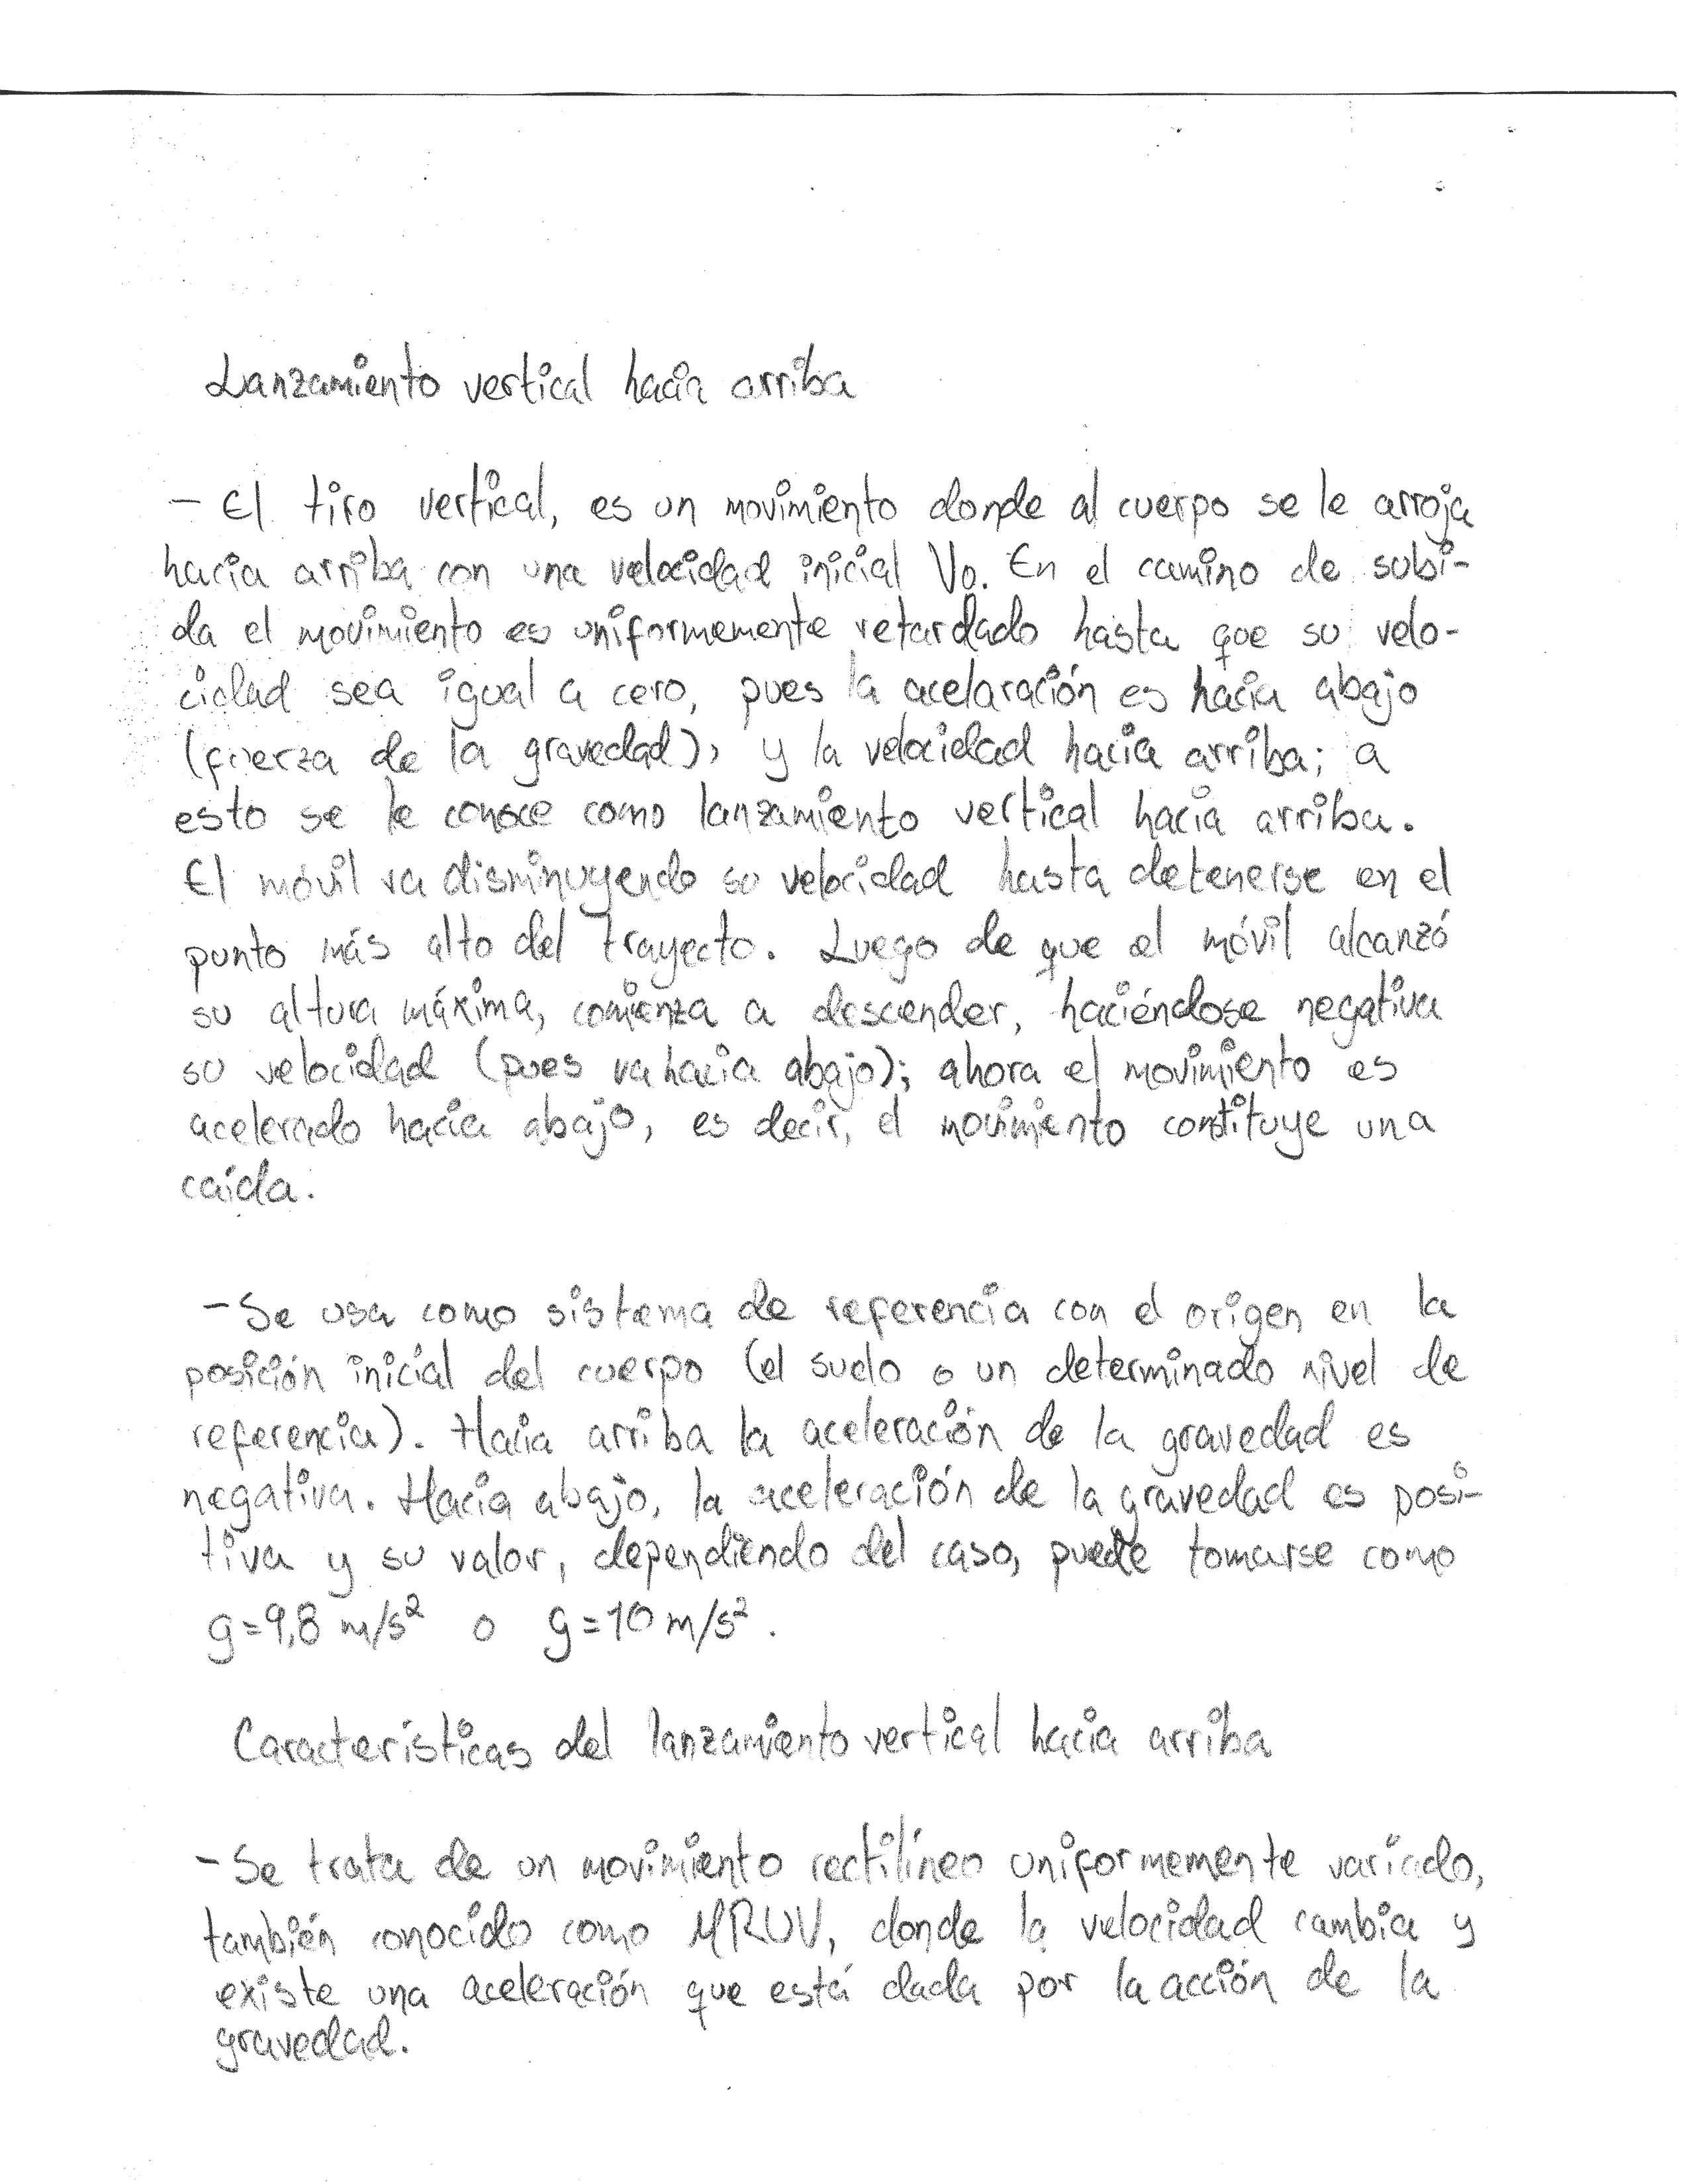 Lanzamiento vertical hacia arriba
- El tiro vertical, es un movimiento donde al cuerpo se le arroja
hacia arriba con una velocidad inicial Vo. En el camino de subi-
da el movimiento es uniformemente retardado hasta que su velo-
cidad sea igual a cero, pues la acelaración es hacia abajo
(fuerza de la gravedad), y la velocidad hacia arriba; a
esto se le conoce como lanzamiento vertical hacia arriba.
El móvil va disminuyendo su velocidad hasta detenerse en el
punto más alto del trayecto. Luego de que el móvil alcanzó
su altura máxima, comienza a descender, haciéndose negativa
su velocidad (pues va hacia abajo); ahora el movimiento es
acelerado hacia abajo, es decir, el movimiento constituye una
caída.
- Se usa como sistema de referencia con el origen en la
posición inicial del cuerpo (el suelo o un determinado nivel de
referencia). Hacia arriba la aceleración de la gravedad es
negativa. Hacia abajo, la aceleración de la gravedad es posi-
tiva y su valor, dependiendo del caso, puede tomarse como
g=9,8 m/s² o g=10 m/s².
Características del lanzamiento vertical hacia arriba
- Se trata de un movimiento rectilíneo uniformemente variado,
también conocido como MRUV, donde la velocidad cambia y
existe una aceleración que está dada por la acción de la
gravedad.